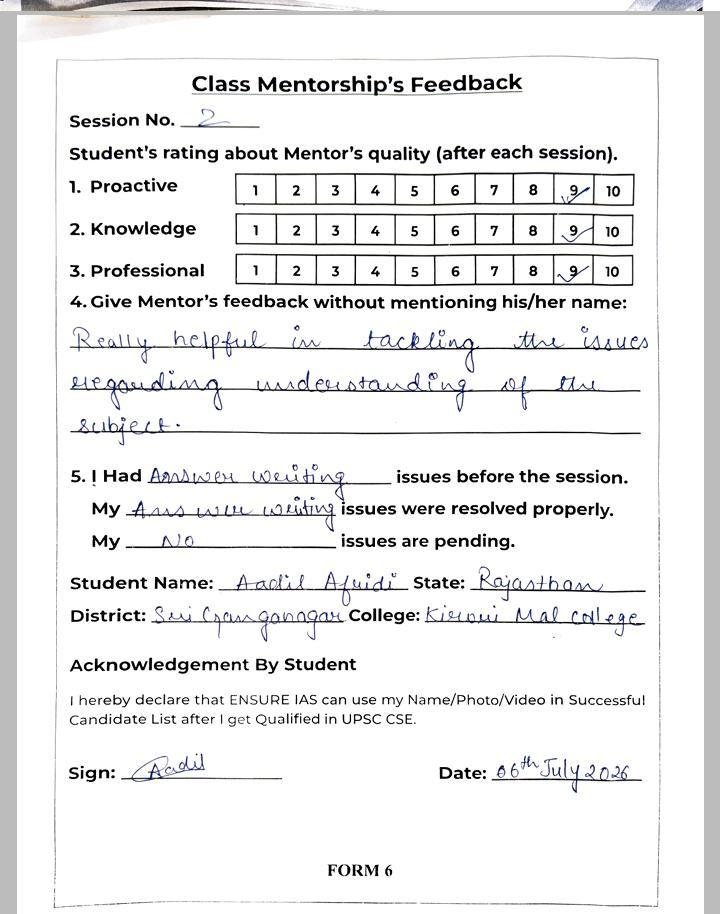 Class Mentorship's Feedback
Session No. 2
Student's rating about Mentor's quality (after each session).
1. Proactive 1 2 3 4 5 6 7 8 9 10
2. Knowledge 1 2 3 4 5 6 7 8 9 10
3. Professional 1 2 3 4 5 6 7 8 9 10
4. Give Mentor's feedback without mentioning his/her name:
Really helpful in tackling the issues
regarding understanding of the
subject.
5. I Had Answer writing issues before the session.
My Answer writing issues were resolved properly.
My No issues are pending.
Student Name: Aadil Afridi State: Rajasthan
District: Sri Ganganagar College: Kirori Mal college
Acknowledgement By Student
I hereby declare that ENSURE IAS can use my Name/Photo/Video in Successful
Candidate List after I get Qualified in UPSC CSE.
Sign: Aadil Date: 06th July 2026
FORM 6